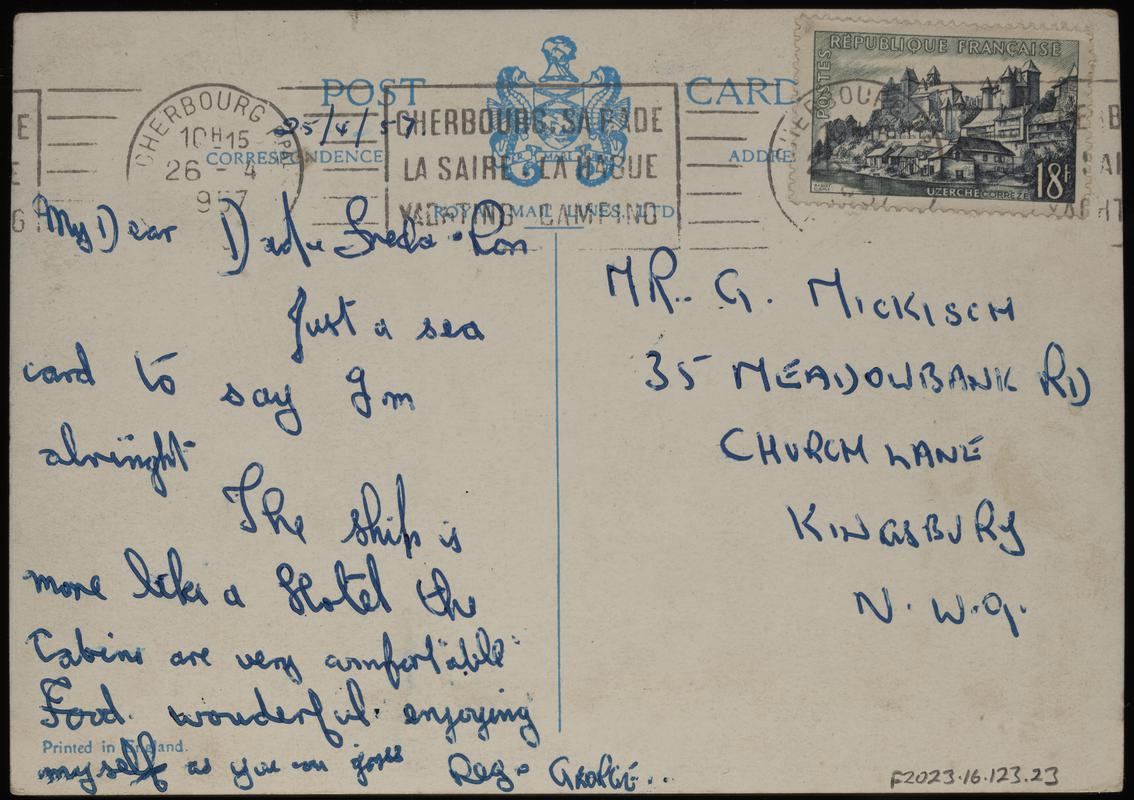 POST CARD
CHERBOURG PPAL
10H15
26 - 4
957
25/4/57
CHERBOURG, SA RADE
LA SAIRE - LA HAGUE
YACHTING CAMPING
CORRESPONDENCE
ADDRE
ROYAL MAIL LINES, LTD
RÉPUBLIQUE FRANÇAISE
POSTES
UZERCHE CORRÈZE
18F
My Dear Freda · Ron
Just a sea
card to say Im
alringht
The ship is
more like a Hotel the
Cabins are very comfortable
Food. wonderful. enjoying
myself as you can
Reg
Printed in England.
MR. G. MICKISCH
35 MEADOWBANK RD
CHURCH LANE
KINGSBURY
N. W. 9.
F2023.16.123.23